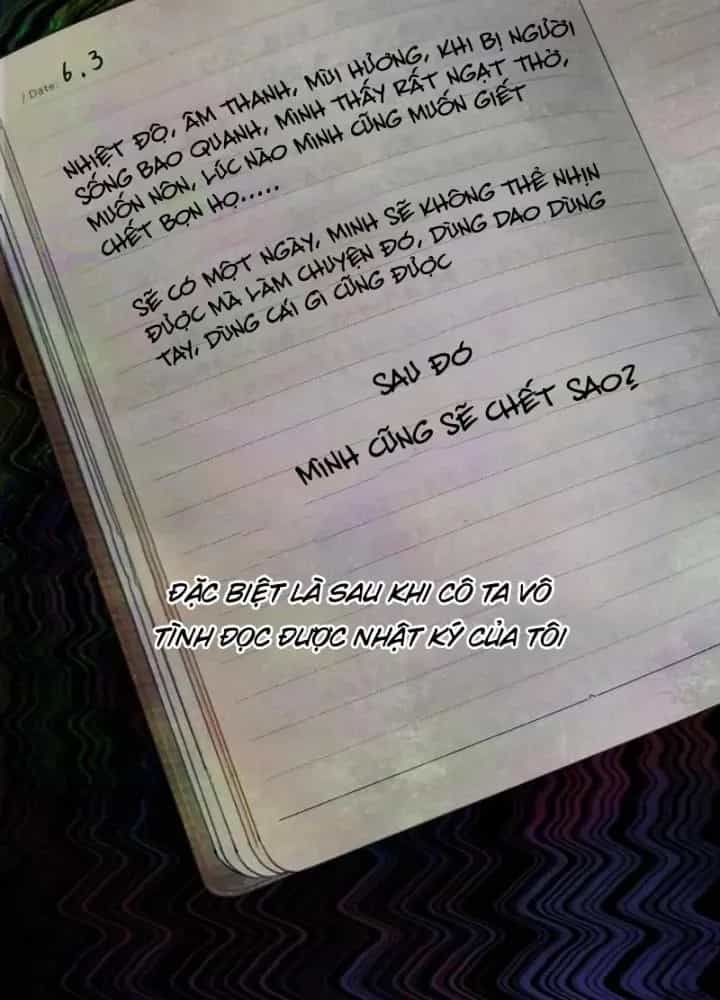 / Date: 6.3
NHIỆT ĐỘ, ÂM THANH, MÙI HƯƠNG, KHI BỊ NGƯỜI
SỐNG BAO QUANH, MÌNH THẤY RẤT NGẠT THỞ,
MUỐN NÔN, LÚC NÀO MÌNH CŨNG MUỐN GIẾT
CHẾT BỌN HỌ.....
SẼ CÓ MỘT NGÀY, MINH SẼ KHÔNG THỂ NHỊN
ĐƯỢC MÀ LÀM CHUYỆN ĐÓ, DÙNG DAO DÙNG
TAY, DÙNG CÁI GÌ CŨNG ĐƯỢC
SAU ĐÓ
MÌNH CŨNG SẼ CHẾT SAO?
ĐẶC BIỆT LÀ SAU KHI CÔ TA VÔ
TÌNH ĐỌC ĐƯỢC NHẬT KÝ CỦA TÔI